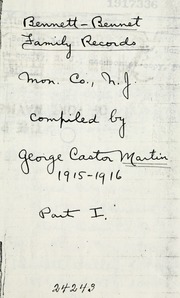 Bennett-Bennet
Family Records
Mon. Co., N.J.
compiled by
George Castor Martin
1915-1916
Part I.
24243